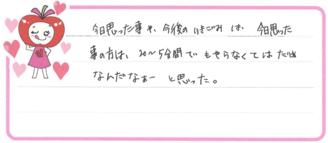 今日思った事や、今後のいきごみは、今日思った
事の方は、20～5分間でもやらなくてはだめ
なんだなぁー と思った。